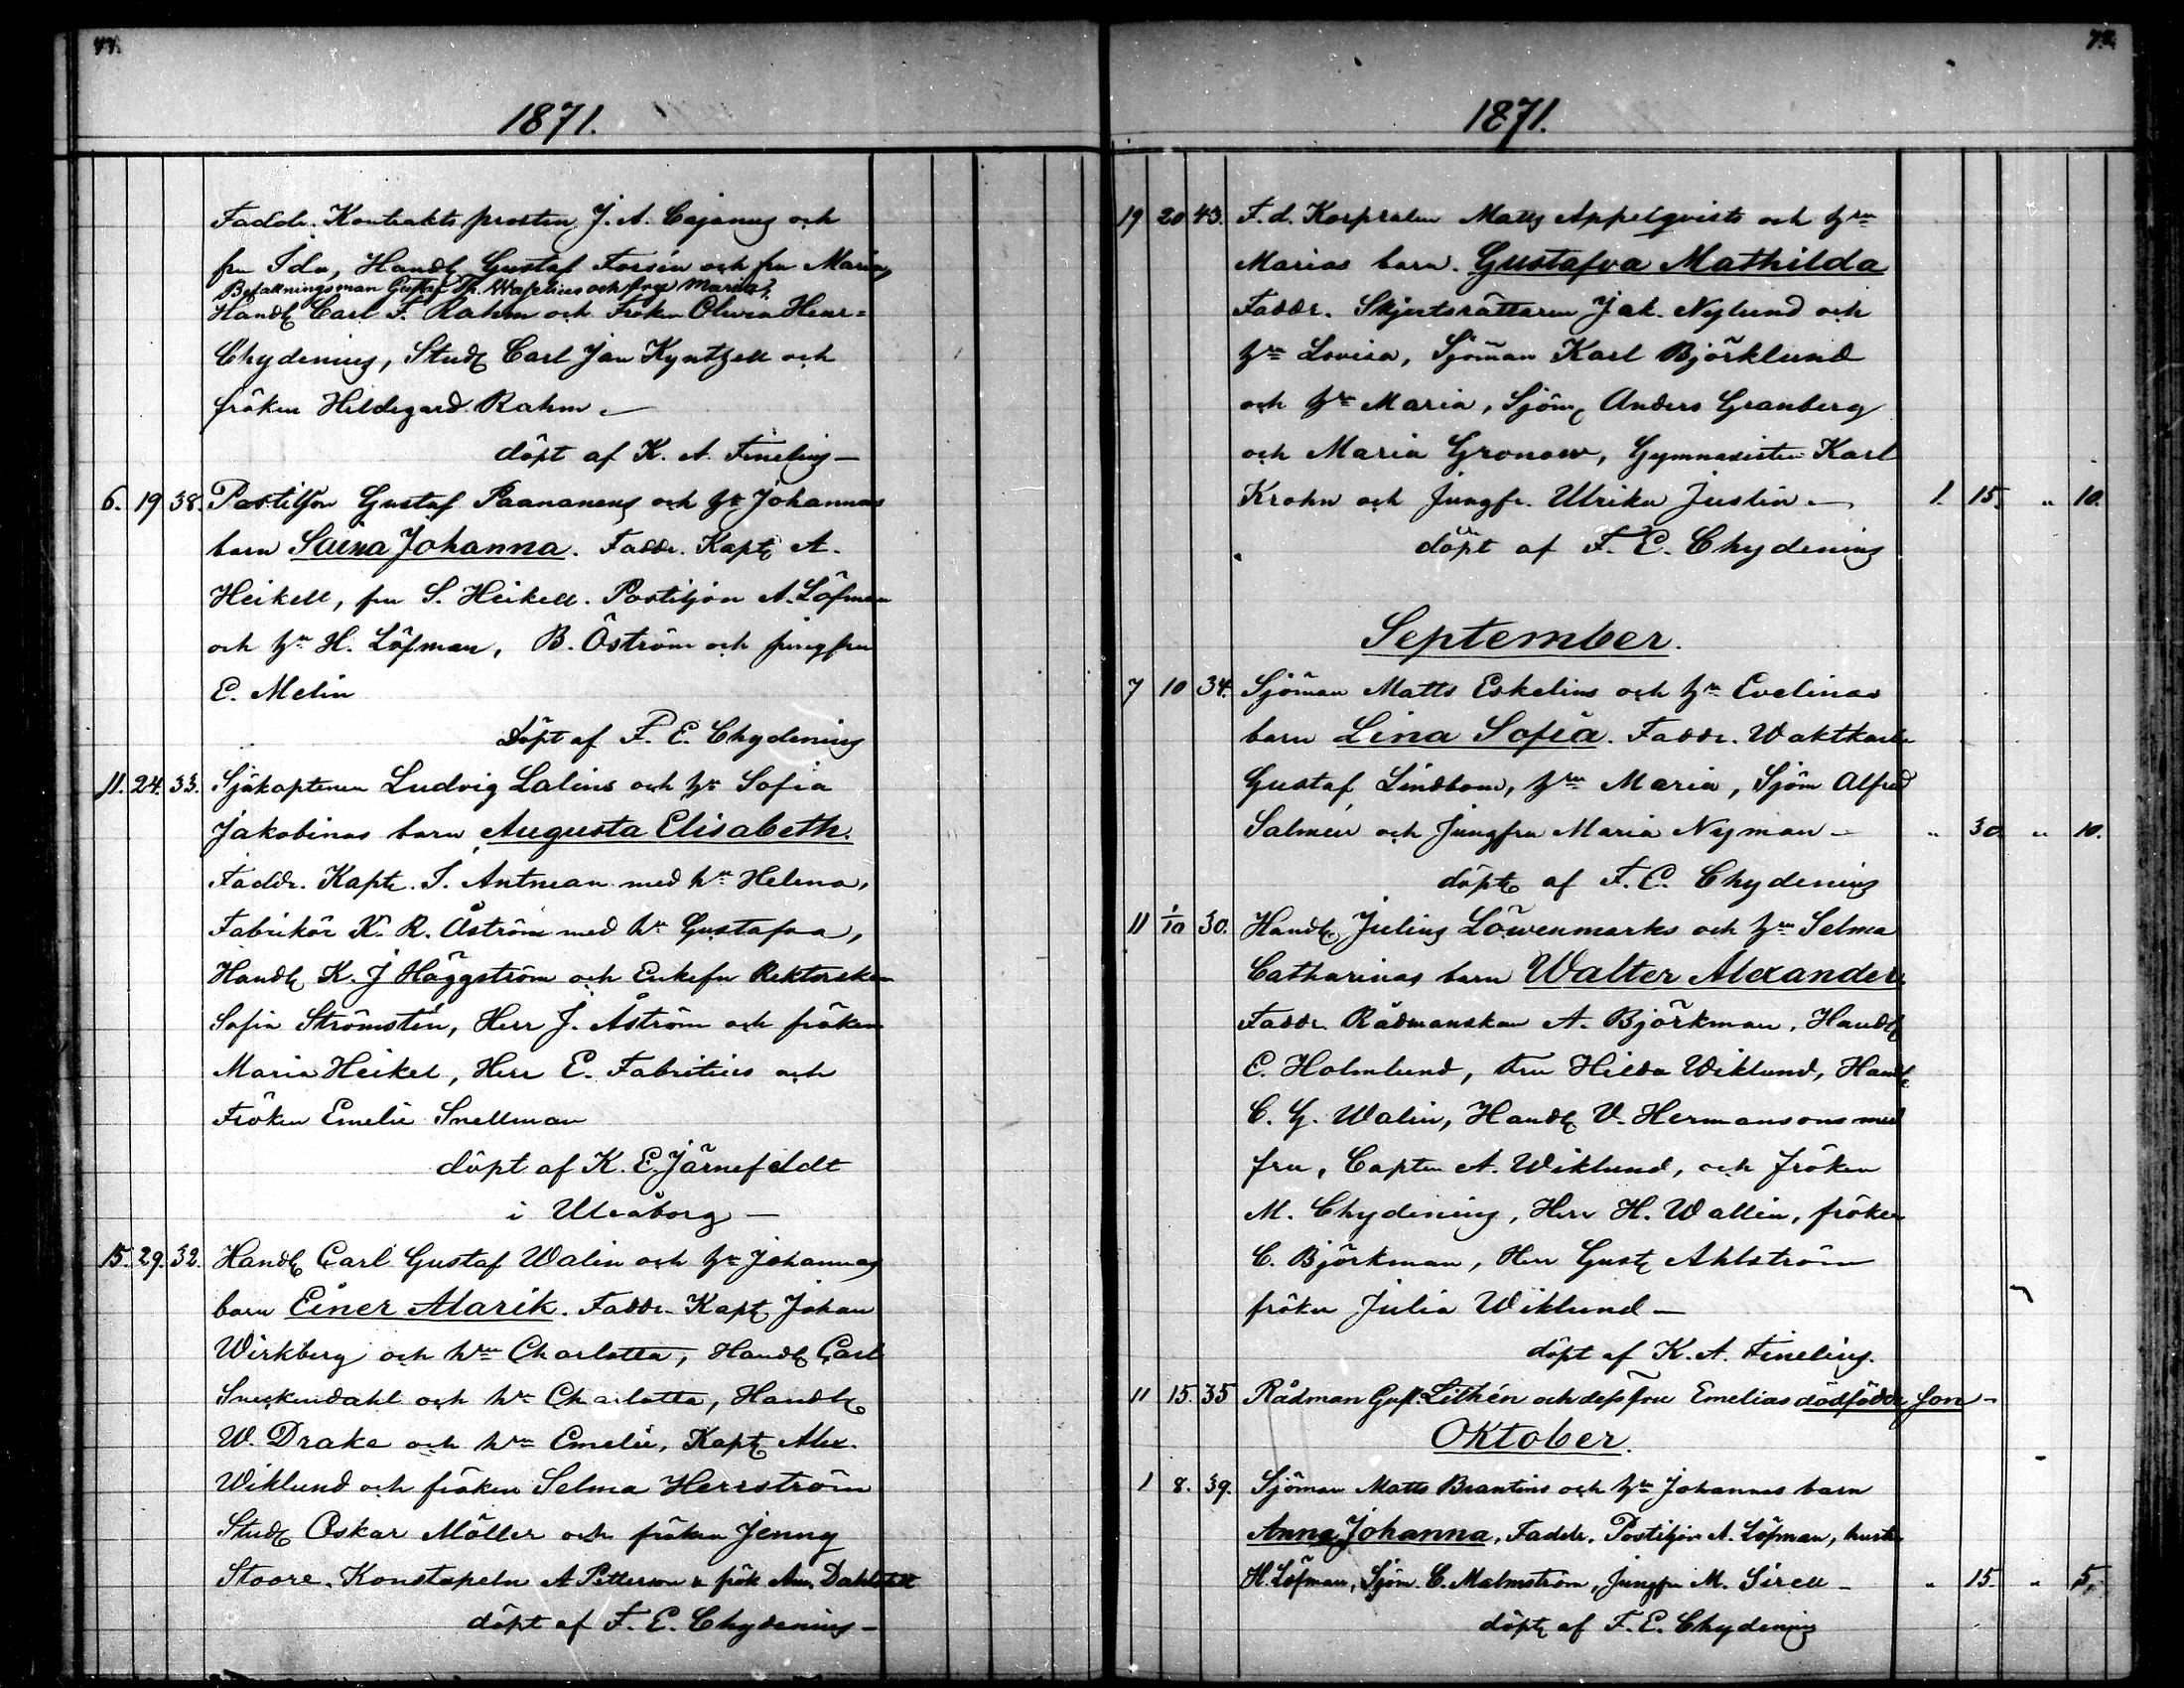 1871.
Faddr. Kontraktsprosten J. A. Cajanus och
fru Ida, Handl Gustaf Forsén och fru Maria,
Befallningsman Gustaf Th. Wapelius och fru Maria,
Handl Carl F. Rahm och Fröken Olivia Henr=
Chydenius, Stud Carl Jan Kyntzell och
fröken Hildegard Rahm.—
döpt af K. A. Fineling—
6. 19 38. Postiljon Gustaf Paananens och hr Johannas
barn Saima Johanna. Faddr. Kapt A.
Heikell, fru S. Heikell. Postiljon A. Löfman
och hn H. Löfman, B. Öström och jungfru
E. Melin
döpt af F. E. Chydenius
11. 24. 33. Sjökaptenen Ludvig Lalins och hr Sofia
Jakobinas barn Augusta Elisabeth.
Faddr. Kapt. I. Antman med hn Helena,
Fabrikör K. R. Åström med hn Gustafva,
Handl K. J Häggström och Enkefru Rektorskan
Sofia Strömstén, Herr J. Åström och fröken
Maria Heikel, Herr E. Fabritius och
Fröken Emelie Snellman
döpt af K. E. Järnefeldt
i Uleåborg—
15. 29. 32. Handl Carl Gustaf Walin och hr Johannas
barn Einer Alarik. Faddr. Kapt Johan
Wirkberg och hrn Charlotta, Handl Carl
Sneckendahl och hn Charlotta, Handl
W. Drake och hrn Emelie, Kapt Alex.
Wiklund och fröken Selma Herrström
Stud Oskar Möller och fröken Jenny
Stoore. Konstapeln A Petterson & frök Am. Dahlstett
döpt af F. E. Chydenius—
1871.
19 20 43. F. d. Korpralen Matts Appelqvists och hrn
Marias barn. Gustafva Mathilda
Faddr. Skjutsrättaren Jak. Nylund och
hrn Lovisa, Sjöman Karl Björklund
och hrn Maria, Sjöm Anders Granberg
och Maria Gronow, Gymnasisten Karl
Krohn och Jungfr. Ulrika Justin.— 1. 15. " 10.
döpt af F. E. Chydenius
September.
7 10 34. Sjöman Matts Eskelins och hrn Evelinas
barn Lina Sofia. Faddr. Waktkarln
Gustaf Lindbom, hrn Maria, Sjöm Alfred
Salmén och Jungfru Maria Nyman— " 30. " 10.
döpt af F. E. Chydenius
11 1/10 30. Handl Julius Löwenmarks och hrn Selma
Catharinas barn Walter Alexander.
Faddr. Rådmanskan A. Björkman, Handl
E. Holmlund, Fru Hilda Wiklund, Handl
C. G. Walin, Handl V. Hermansons med
fru, Capten A. Wiklund, och fröken
M. Chydenius, Herr H. Wallin, fröken
C. Björkman, Herr Gust Ahlström
fröken Julia Wiklund—
döpt af K. A. Fineling.
11 15. 35 Rådman Gust. Lithén och dess fru Emelias dödfödde son—
Oktober.
1 8. 39. Sjöman Matts Brantins och hrn Johannas barn
Anna Johanna, Faddr. Postiljon A. Löfman, hustru
H. Löfman, Sjöm. C. Malmström, Jungfru M. Sirell— " 15. " 5.
döpt af F. E. Chydenius